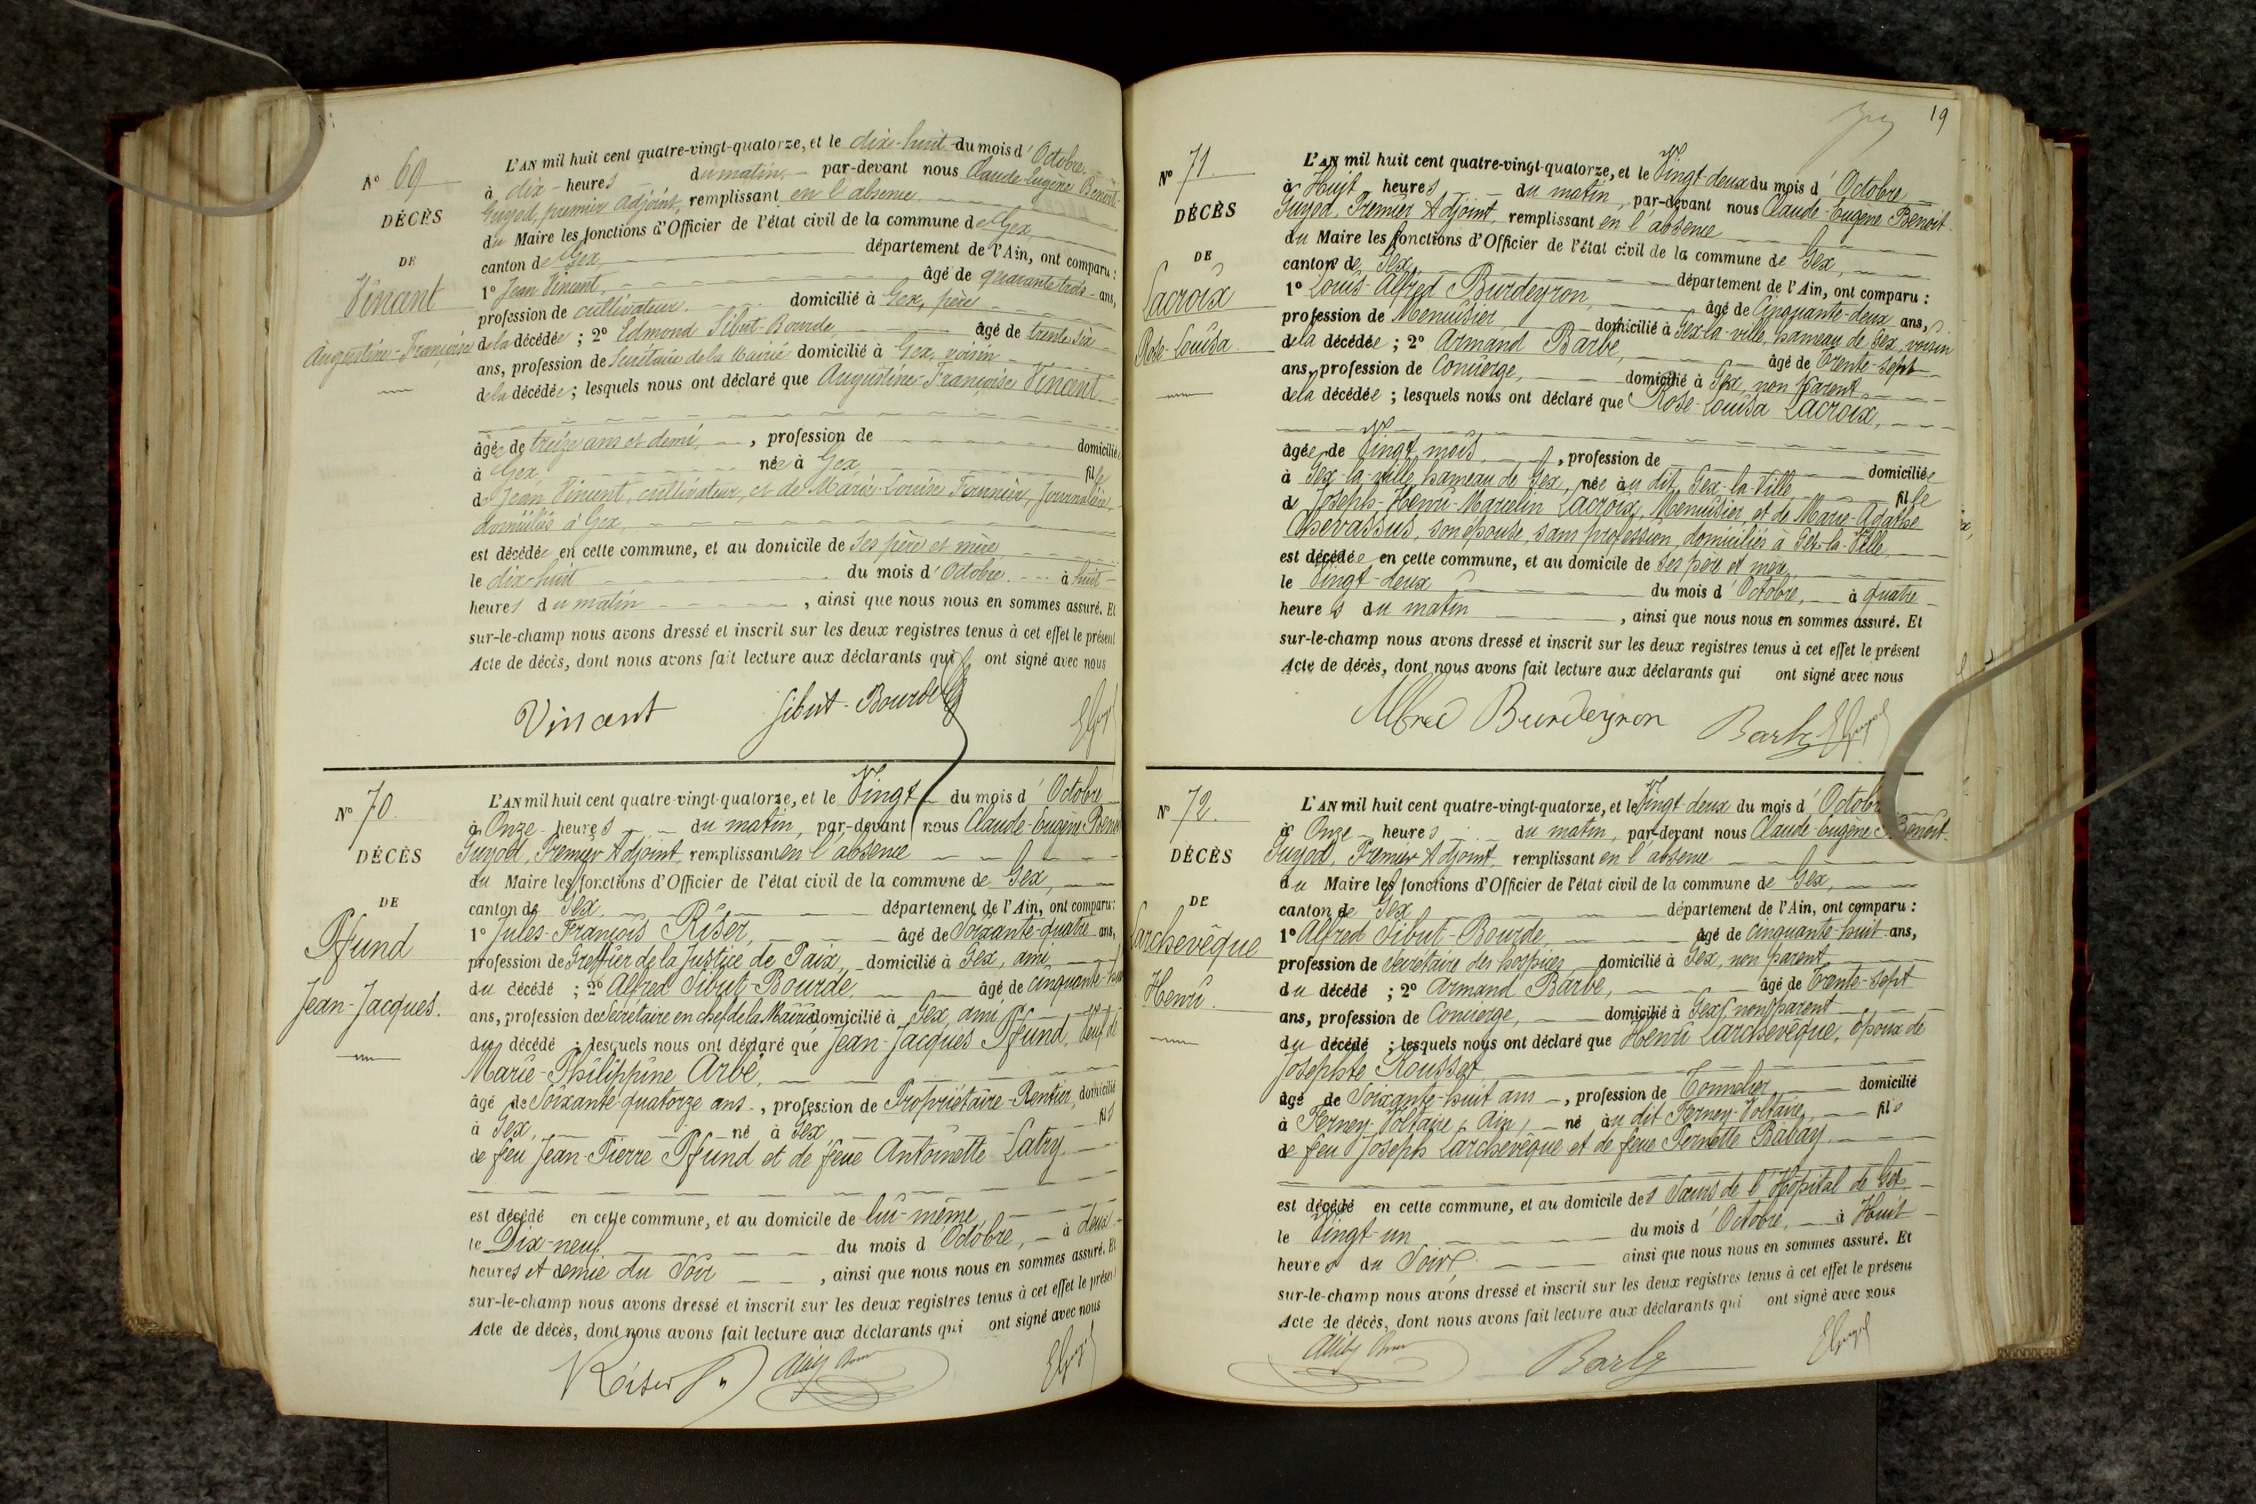 N° 69
DÉCÈS
DE
Vincent
Augustine-Françoise
L'AN mil huit cent quatre-vingt-quatorze, et le dix-huit du mois d'Octobre
à dix heures du matin par-devant nous Claude-Eugène Benoit-
Guyod, premier adjoint, remplissant en l'absence
du Maire les fonctions d'Officier de l'état civil de la commune de Gex
canton de Gex département de l'Ain, ont comparu :
1° Jean Vincent, âgé de quarante trois ans,
profession de cultivateur domicilié à Gex, père
de la décédée ; 2° Edmond Sibut-Bourde âgé de trente six
ans, profession de Secrétaire de la Mairie domicilié à Gex, voisin
de la décédée ; lesquels nous ont déclaré que Augustine-Françoise Vincent
âgée de treize ans et demi, profession de domiciliée
à Gex née à Gex fille
de Jean Vincent, cultivateur, et de Marie-Louise Fournier, journalière,
domiciliés à Gex,
est décédée en cette commune, et au domicile de ses père et mère
le dix-huit du mois d'Octobre à huit
heures du matin, ainsi que nous nous en sommes assuré. Et
sur-le-champ nous avons dressé et inscrit sur les deux registres tenus à cet effet le présent
Acte de décès, dont nous avons fait lecture aux déclarants qui ont signé avec nous
Vincent Sibut-Bourde EGuyod
N° 70
DÉCÈS
DE
Pfund
Jean-Jacques.
L'AN mil huit cent quatre-vingt-quatorze, et le Vingt du mois d'Octobre
à Onze heures du matin, par-devant nous Claude-Eugène Benoit
Guyod, Premier Adjoint, remplissant en l'absence
du Maire les fonctions d'Officier de l'état civil de la commune de Gex,
canton de Gex département de l'Ain, ont comparu :
1° Jules-François Riser, âgé de Soixante-quatre ans,
profession de Greffier de la Justice de Paix, domicilié à Gex, ami
du décédé ; 2° Alfred Sibut-Bourde, âgé de cinquante-huit
ans, profession de Secrétaire en chef de la Mairie domicilié à Gex, ami
du décédé ; lesquels nous ont déclaré que Jean-Jacques Pfund, veuf de
Marie-Philippine Arbé,
âgé de Soixante-quatorze ans, profession de Propriétaire-Rentier, domicilié
à Gex, né à Gex fils
de feu Jean-Pierre Pfund et de feue Antoinette Latry
est décédé en cette commune, et au domicile de lui-même,
le Dix-neuf du mois d'Octobre, à deux
heures et demie du Soir, ainsi que nous nous en sommes assuré. Et
sur-le-champ nous avons dressé et inscrit sur les deux registres tenus à cet effet le présent
Acte de décès, dont nous avons fait lecture aux déclarants qui ont signé avec nous
Riser EGuyod
19
N° 71
DÉCÈS
DE
Lacroix
Rose-Louisa
L'AN mil huit cent quatre-vingt-quatorze, et le Vingt-deux du mois d'Octobre
à Huit heures du matin, par-devant nous Claude-Eugène Benoit-
Guyod, Premier Adjoint, remplissant en l'absence
du Maire les fonctions d'Officier de l'état civil de la commune de Gex,
canton de Gex département de l'Ain, ont comparu :
1° Louis-Alfred Burdeyron, âgé de Cinquante-deux ans,
profession de Menuisier domicilié à Gex-la-ville, hameau de Gex, voisin
de la décédée ; 2° Armand Barbe, âgé de Trente-sept
ans, profession de Concierge, domicilié à Gex, non parent
de la décédée ; lesquels nous ont déclaré que Rose-Louisa Lacroix,
âgée de Vingt mois, profession de domiciliée
à Gex-la-ville, hameau de Gex, née au dit Gex-la-Ville fille
de Joseph-Henri-Marcelin Lacroix, Menuisier, et de Marie-Agathe
Chevassus, son épouse, sans profession, domiciliés à Gex-la-Ville,
est décédée en cette commune, et au domicile de ses père et mère
le Vingt-deux du mois d'Octobre, à quatre
heures du matin, ainsi que nous nous en sommes assuré. Et
sur-le-champ nous avons dressé et inscrit sur les deux registres tenus à cet effet le présent
Acte de décès, dont nous avons fait lecture aux déclarants qui ont signé avec nous
Alfred Burdeyron Barbe EGuyod
N° 72
DÉCÈS
DE
Larchevêque
Henri.
L'AN mil huit cent quatre-vingt-quatorze, et le Vingt-deux du mois d'Octobre
à Onze heures du matin, par-devant nous Claude-Eugène Benoit-
Guyod, Premier Adjoint, remplissant en l'absence
du Maire les fonctions d'Officier de l'état civil de la commune de Gex,
canton de Gex département de l'Ain, ont comparu :
1° Alfred Sibut-Bourde, âgé de cinquante-huit ans,
profession de Secrétaire des hospices domicilié à Gex, non parent
du décédé ; 2° Armand Barbe, âgé de Trente-sept
ans, profession de Concierge, domicilié à Gex, non parent
du décédé ; lesquels nous ont déclaré que Henri Larchevêque, époux de
Josephte Rousset
âgé de Soixante-huit ans, profession de Tonnelier domicilié
à Ferney-Voltaire (Ain), né au dit Ferney-Voltaire, fils
de feu Joseph Larchevêque et de feue Pernette Babay
est décédé en cette commune, et au domicile des Sœurs de l'Hôpital de Gex
le Vingt-un du mois d'Octobre, à Huit
heures du Soir, ainsi que nous nous en sommes assuré. Et
sur-le-champ nous avons dressé et inscrit sur les deux registres tenus à cet effet le présent
Acte de décès, dont nous avons fait lecture aux déclarants qui ont signé avec nous
Barbe EGuyod